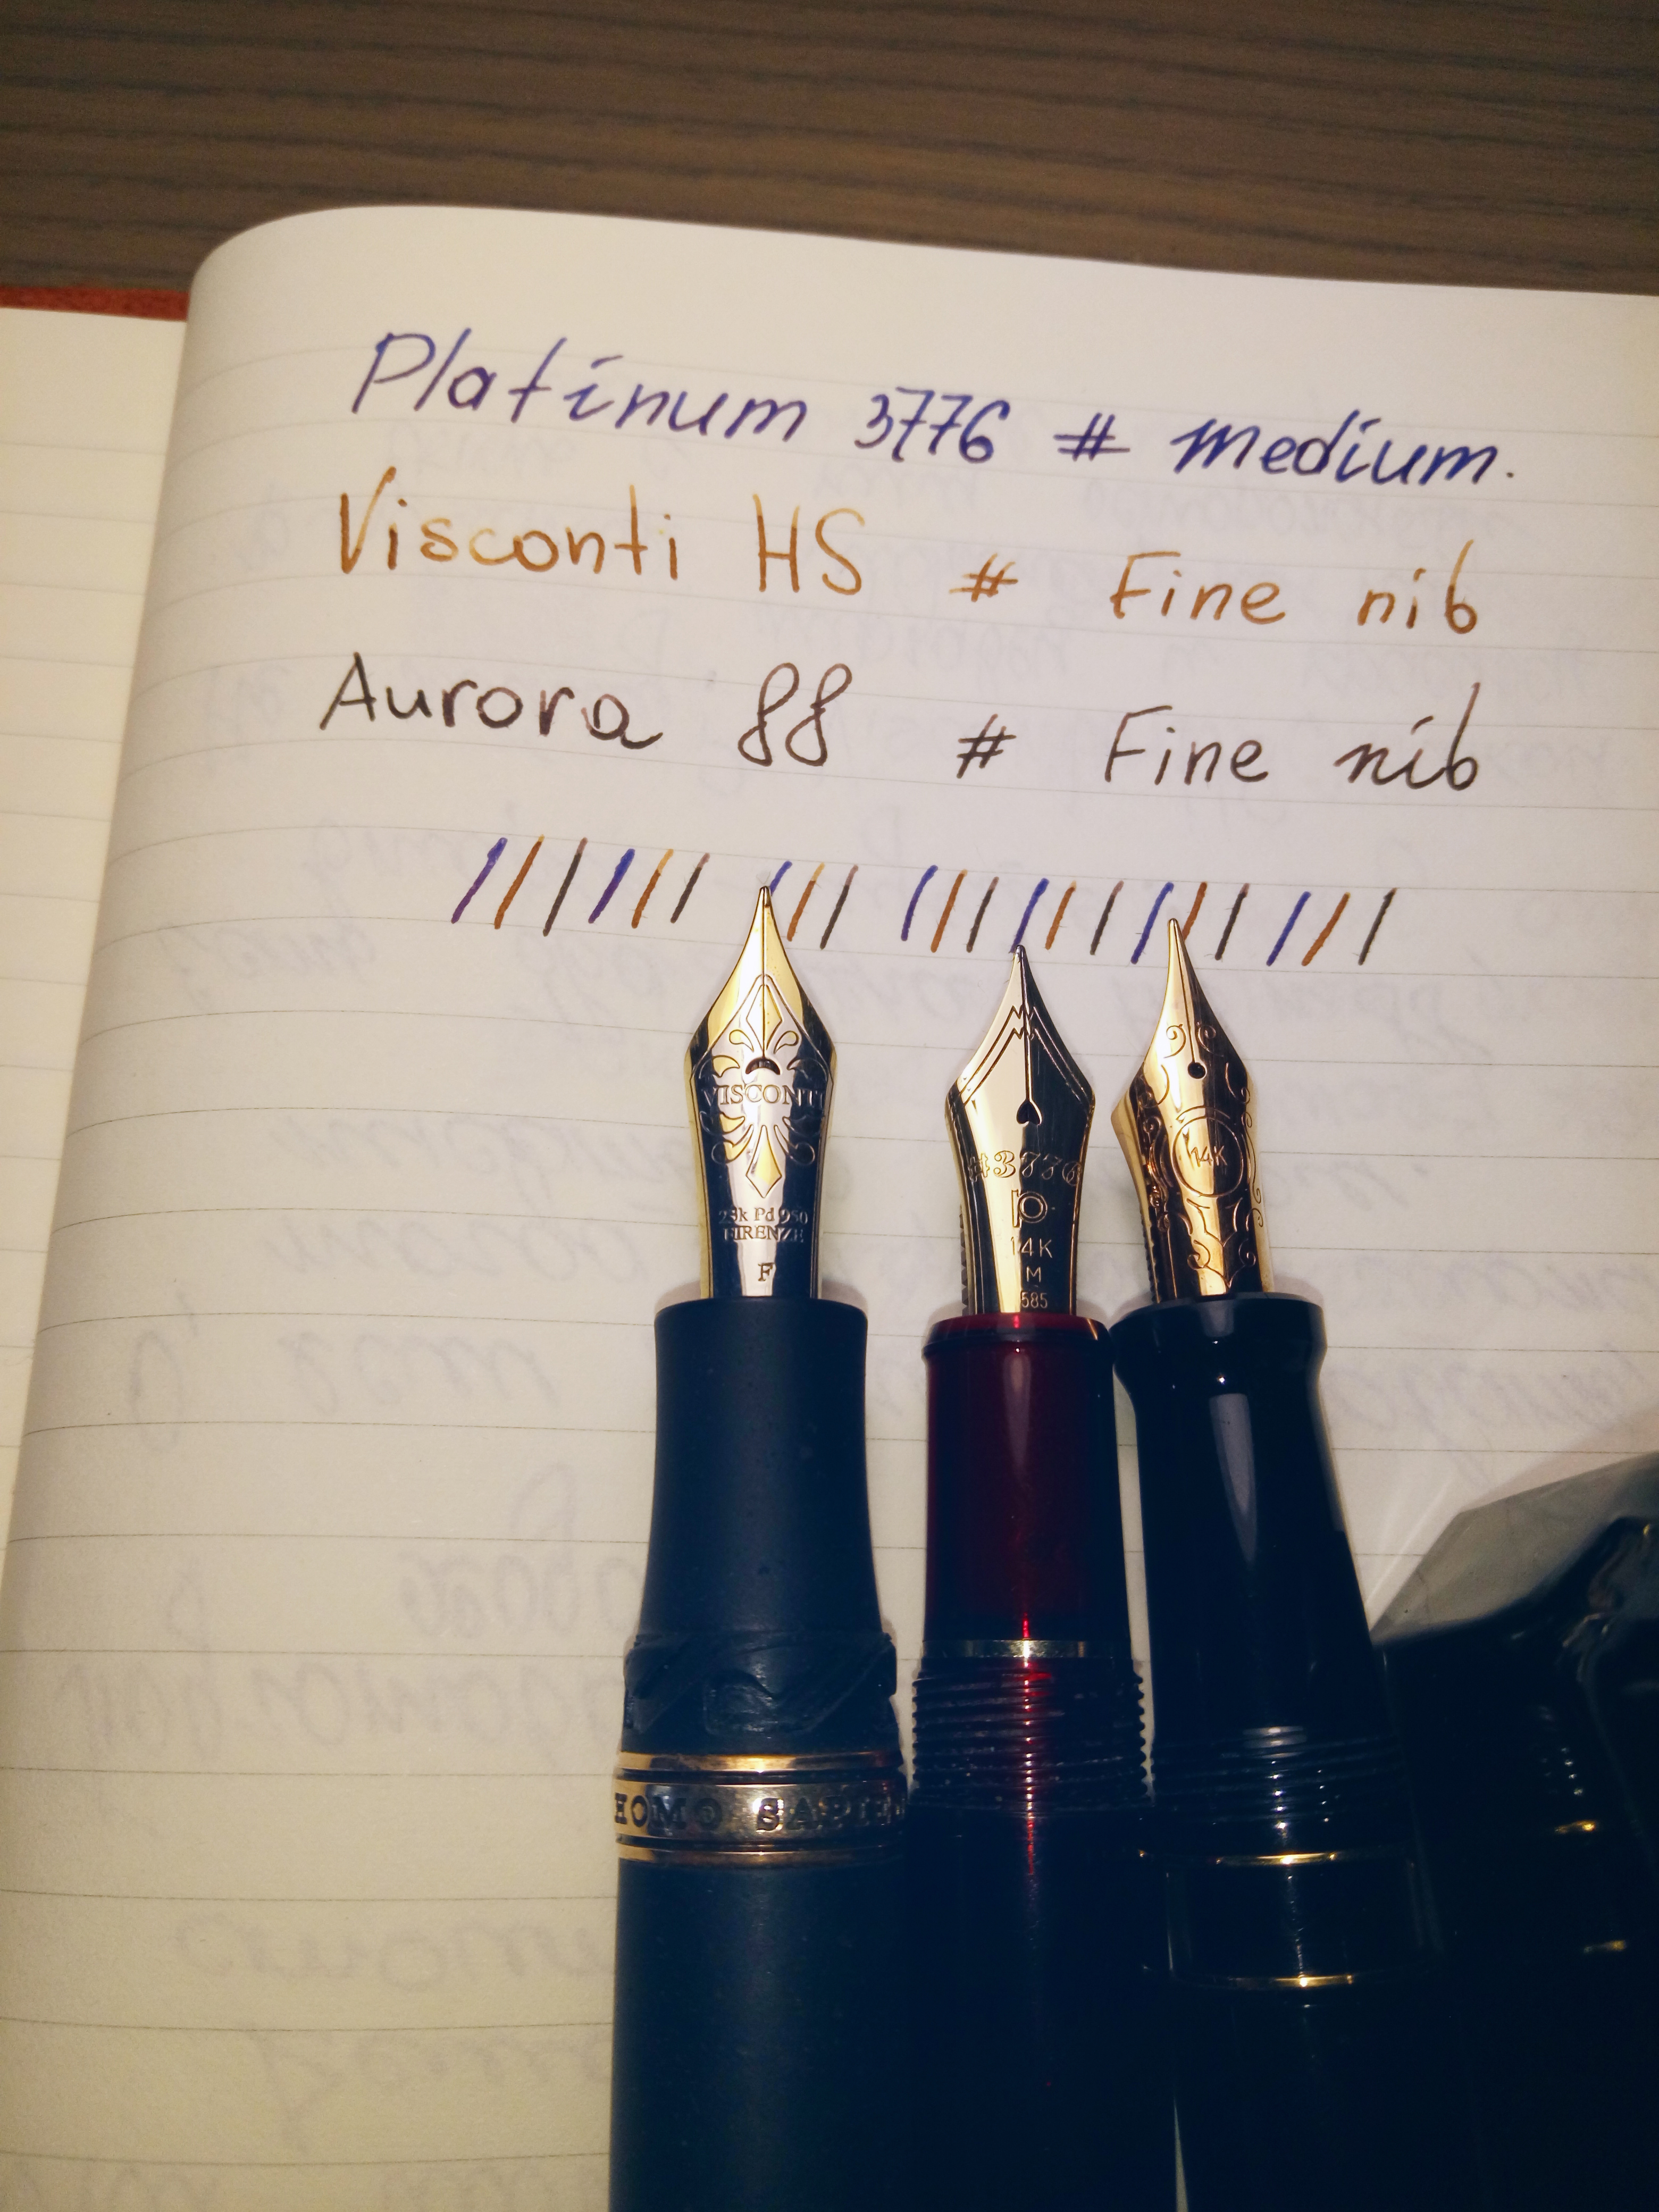 Platinum 3776 # medium.
Visconti HS # Fine nib
Aurora 88 # Fine nib
VISCONTI
23k Pd 950
FIRENZE
F
#3776
P
14K
M
585
14K
HOMO SAPIE